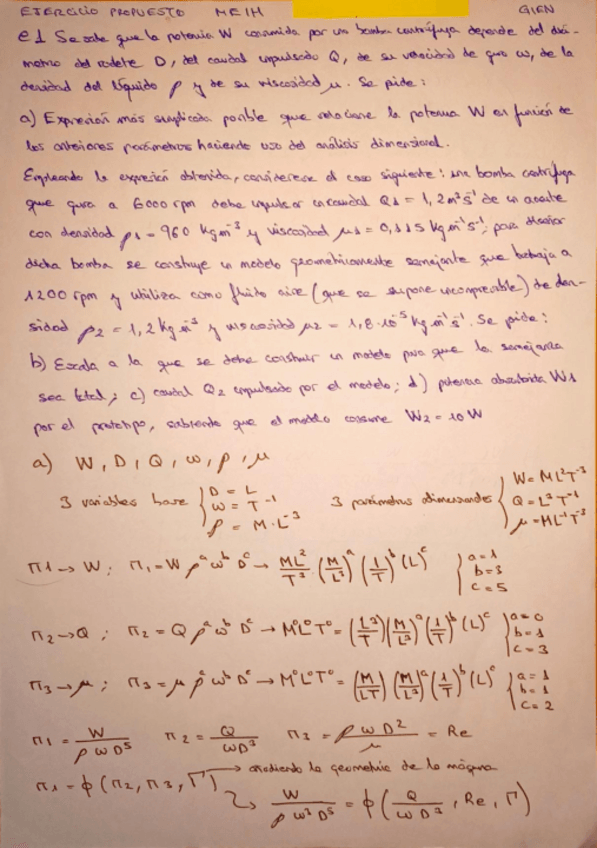 EJERCICIO PROPUESTO MEIH GIEN
e1 Se sabe que la potencia W consumida por una bomba centrífuga depende del diá-
metro del rodete D, del caudal impulsado Q, de su velocidad de giro ω, de la
densidad del líquido ρ y de su viscosidad μ. Se pide:
a) Expresión más simplificada posible que relacione la potencia W en función de
los anteriores parámetros haciendo uso del análisis dimensional.
Empleando la expresión obtenida, considérese el caso siguiente: una bomba centrífuga
que gira a 6000 rpm debe impulsar un caudal Q1 = 1,2 m³s⁻¹ de un aceite
con densidad ρ1 = 960 kg m⁻³ y viscosidad μ1 = 0,115 kg m⁻¹s⁻¹; para diseñar
dicha bomba se construye un modelo geométricamente semejante que trabaja a
1200 rpm y utiliza como fluido aire (que se supone incompresible) de den-
sidad ρ2 = 1,2 kg m⁻³ y viscosidad μ2 = 1,8·10⁻⁵ kg m⁻¹s⁻¹. Se pide:
b) Escala a la que se debe construir un modelo para que la semejanza
sea total; c) caudal Q2 impulsado por el modelo; d) potencia absorbida W1
por el prototipo, sabiendo que el modelo consume W2 = 10 W
a) W, D, Q, ω, ρ, μ
3 variables base { D = L ω = T⁻¹ ρ = M·L⁻³ 3 parámetros { W = ML²T⁻³ Q = L³T⁻¹ μ = ML⁻¹T⁻³
π1 → W; π1 = W ρᵃ ωᵇ Dᶜ → ML²/T³ (M/L³)ᵃ (1/T)ᵇ (L)ᶜ { a=1 b=3 c=5
π2 → Q; π2 = Q ρᵃ ωᵇ Dᶜ → M⁰L⁰T⁰ = (L³/T)(M/L³)ᵃ (1/T)ᵇ (L)ᶜ { a=0 b=1 c=3
π3 → μ; π3 = μ ρᵃ ωᵇ Dᶜ → M⁰L⁰T⁰ = (M/LT) (M/L³)ᵃ (1/T)ᵇ (L)ᶜ { a=1 b=1 c=2
π1 = W/ρ ω D⁵ π2 = Q/ωD³ π3 = ρ ω D²/μ = Re
π1 = ϕ (π2, π3, Γ) → añadiendo la geometría de la máquina
W/ρ ω³ D⁵ = ϕ (Q/ω D³, Re, Γ)